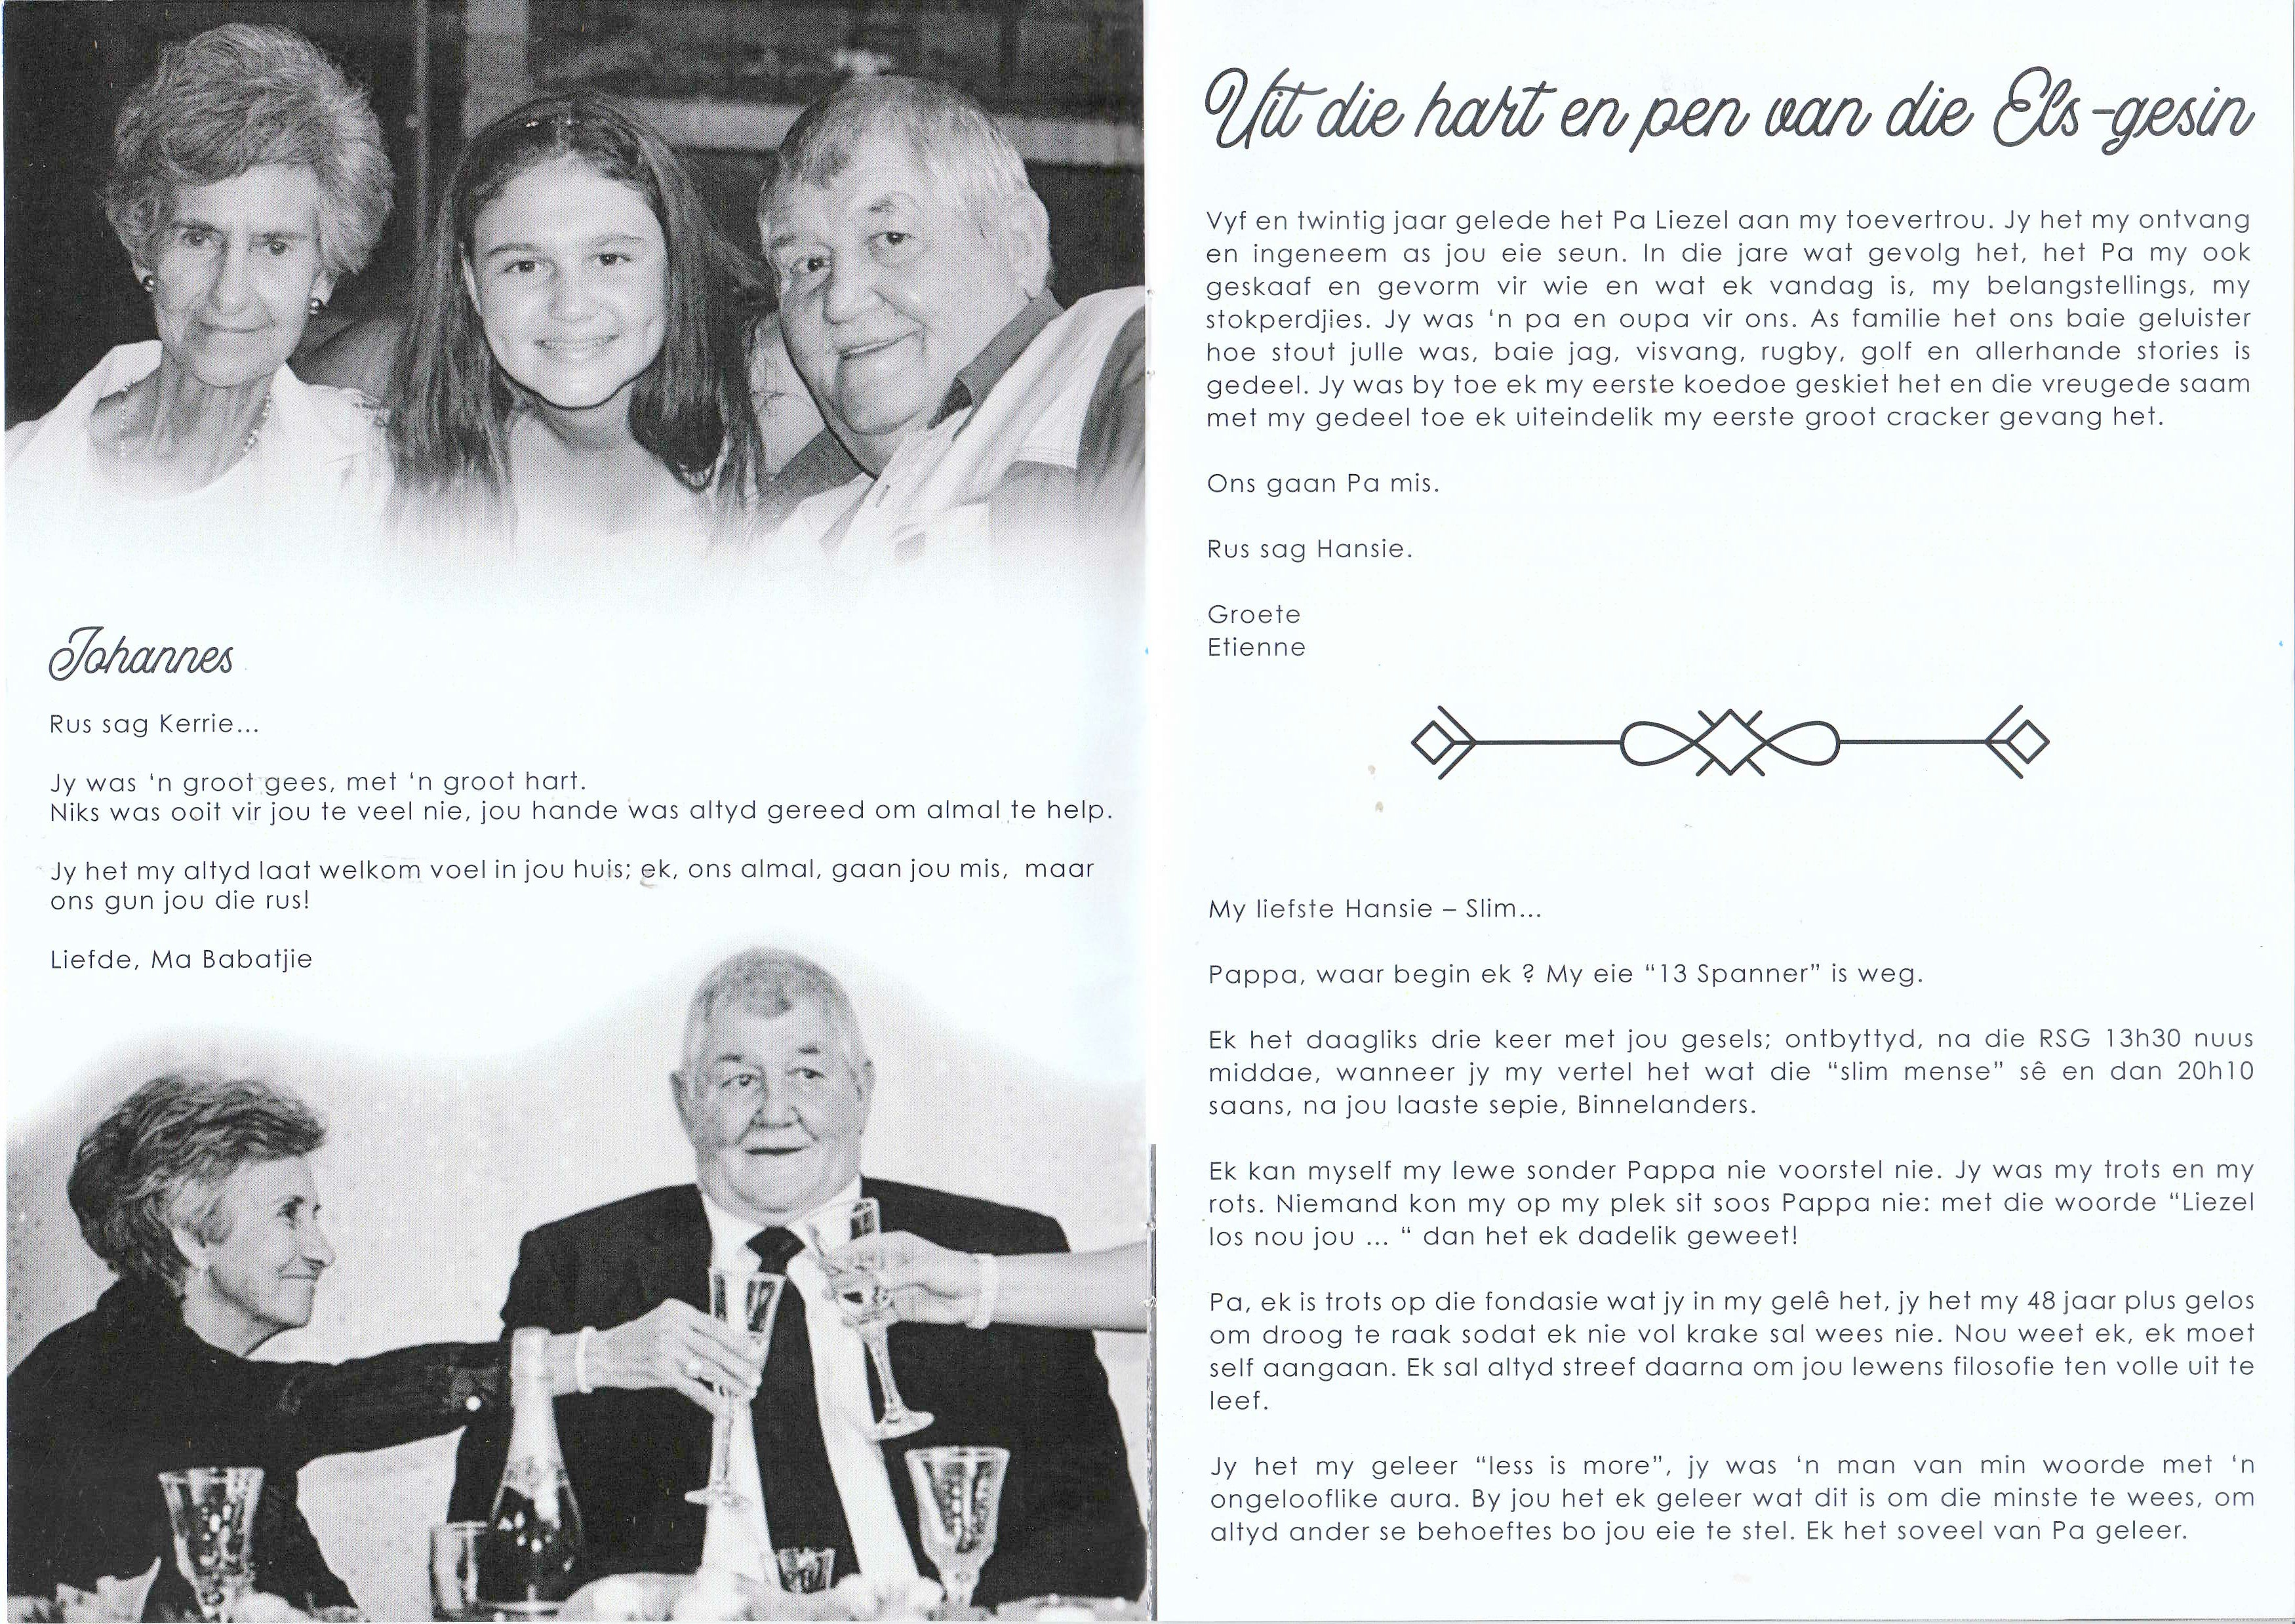 Johannes
Rus sag Kerrie...
Jy was ‘n groot gees, met ‘n groot hart.
Niks was ooit vir jou te veel nie, jou hande was altyd gereed om almal te help.
Jy het my altyd laat welkom voel in jou huis; ek, ons almal, gaan jou mis, maar
ons gun jou die rus!
Liefde, Ma Babatjie
Uit die hart en pen van die Els-gesin
Vyf en twintig jaar gelede het Pa Liezel aan my toevertrou. Jy het my ontvang
en ingeneem as jou eie seun. In die jare wat gevolg het, het Pa my ook
geskaaf en gevorm vir wie en wat ek vandag is, my belangstellings, my
stokperdjies. Jy was ‘n pa en oupa vir ons. As familie het ons baie geluister
hoe stout julle was, baie jag, visvang, rugby, golf en allerhande stories is
gedeel. Jy was by toe ek my eerste koedoe geskiet het en die vreugede saam
met my gedeel toe ek uiteindelik my eerste groot cracker gevang het.
Ons gaan Pa mis.
Rus sag Hansie.
Groete
Etienne
My liefste Hansie – Slim...
Pappa, waar begin ek ? My eie “13 Spanner” is weg.
Ek het daagliks drie keer met jou gesels; ontbyttyd, na die RSG 13h30 nuus
middae, wanneer jy my vertel het wat die “slim mense” sê en dan 20h10
saans, na jou laaste sepie, Binnelanders.
Ek kan myself my lewe sonder Pappa nie voorstel nie. Jy was my trots en my
rots. Niemand kon my op my plek sit soos Pappa nie: met die woorde “Liezel
los nou jou ... “ dan het ek dadelik geweet!
Pa, ek is trots op die fondasie wat jy in my gelê het, jy het my 48 jaar plus gelos
om droog te raak sodat ek nie vol krake sal wees nie. Nou weet ek, ek moet
self aangaan. Ek sal altyd streef daarna om jou lewens filosofie ten volle uit te
leef.
Jy het my geleer “less is more”, jy was ‘n man van min woorde met ‘n
ongelooflike aura. By jou het ek geleer wat dit is om die minste te wees, om
altyd ander se behoeftes bo jou eie te stel. Ek het soveel van Pa geleer.